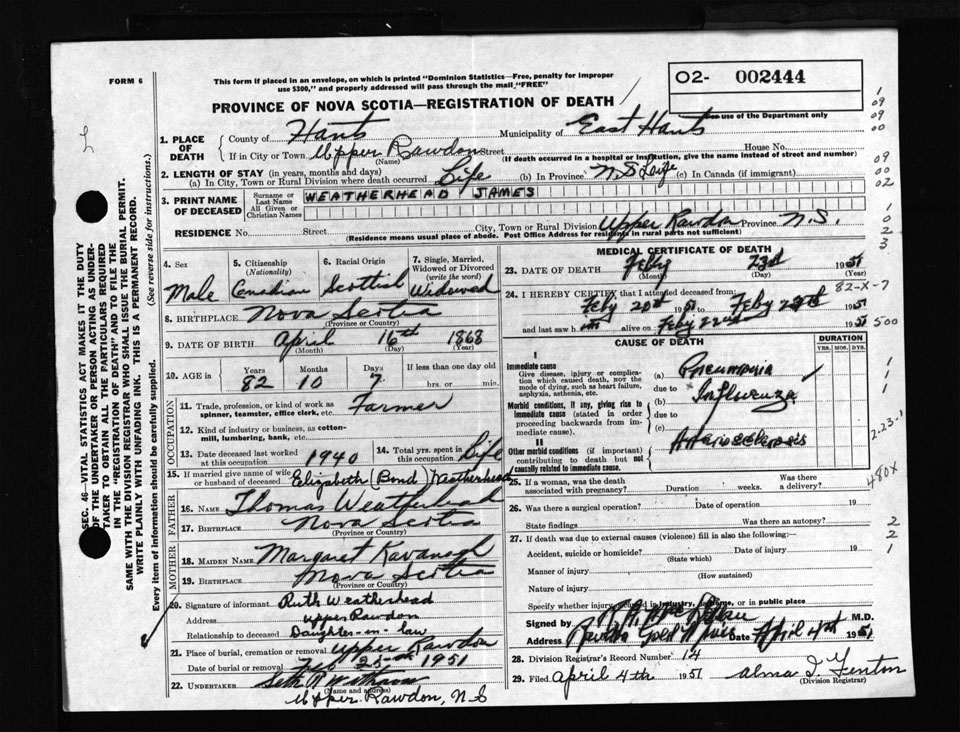 FORM 6
This form if placed in an envelope, on which is printed "Dominion Statistics—Free, penalty for improper
use $300," and properly addressed will pass through the mail "FREE"
O2- 002444
PROVINCE OF NOVA SCOTIA—REGISTRATION OF DEATH
use of the Department only
1. PLACE OF DEATH
County of Hants Municipality of East Hants
If in City or Town Upper Rawdon Street House No.
(Name) (If death occurred in a hospital or institution, give the name instead of street and number)
2. LENGTH OF STAY (in years, months and days)
(a) In City, Town or Rural Division where death occurred Life (b) In Province N.S. Life (c) In Canada (if immigrant)
3. PRINT NAME OF DECEASED
Surname or Last Name
All Given or Christian Names
WEATHERHEAD JAMES
RESIDENCE No. Street City, Town or Rural Division Upper Rawdon Province N.S.
(Residence means usual place of abode. Post Office Address for residents in rural parts not sufficient)
4. Sex
Male
5. Citizenship (Nationality)
Canadian
6. Racial Origin
Scottish
7. Single, Married, Widowed or Divorced (write the word)
Widowed
8. BIRTHPLACE Nova Scotia
(Province or Country)
9. DATE OF BIRTH April 16th 1868
(Month) (Day) (Year)
10. AGE in Years Months Days If less than one day old
82 10 7 hrs. or min.
OCCUPATION
11. Trade, profession, or kind of work as spinner, teamster, office clerk, etc. Farmer
12. Kind of industry or business, as cotton-mill, lumbering, bank, etc.
13. Date deceased last worked at this occupation 1940
14. Total yrs. spent in this occupation Life
15. If married give name of wife or husband of deceased Elizabeth (Bond) Weatherhead
FATHER
16. NAME Thomas Weatherhead
17. BIRTHPLACE Nova Scotia
(Province or Country)
MOTHER
18. MAIDEN NAME Margaret Kavanagh
19. BIRTHPLACE Nova Scotia
(Province or Country)
20. Signature of informant Ruth Weatherhead
Address Upper Rawdon
Relationship to deceased Daughter-in-law
21. Place of burial, cremation or removal Upper Rawdon
Date of burial or removal Feb 25th 1951
22. UNDERTAKER
(Name and address)
Upper Rawdon, N.S
MEDICAL CERTIFICATE OF DEATH
23. DATE OF DEATH Feby 23d 1951
(Month) (Day) (Year)
24. I HEREBY CERTIFY that I attended deceased from:
82-X-7
Feby 20th 1951 to Feby 1951
and last saw h im alive on Feby 22nd 1951
CAUSE OF DEATH
DURATION
YRS. MOS. DYS.
I
Immediate cause
Give disease, injury or complication which caused death, not the mode of dying, such as heart failure, asphyxia, asthenia, etc.
(a) Pneumonia
due to
Morbid conditions, if any, giving rise to immediate cause (stated in order proceeding backwards from immediate cause).
(b) Influenza
due to
(c)
II
Other morbid conditions (if important) contributing to death but not causally related to immediate cause.
Arteriosclerosis
25. If a woman, was the death associated with pregnancy? Duration weeks. Was there a delivery?
26. Was there a surgical operation? Date of operation 19
State findings Was there an autopsy?
27. If death was due to external causes (violence) fill in also the following:—
Accident, suicide or homicide? Date of injury 19
(State which)
Manner of injury
(How sustained)
Nature of injury
Specify whether injury occurred in industry, in home, or in public place
Signed by M.D.
Address Gold Mines Date April 4th 1951
28. Division Registrar's Record Number 14
29. Filed April 4th 1951 Alma I. Fenton
(Division Registrar)
SEC. 46—VITAL STATISTICS ACT MAKES IT THE DUTY
OF THE UNDERTAKER OR PERSON ACTING AS UNDER-
TAKER TO OBTAIN ALL THE PARTICULARS REQUIRED
IN THE "REGISTRATION OF DEATH" AND TO FILE THE
SAME WITH THE DIVISION REGISTRAR WHO SHALL ISSUE THE BURIAL PERMIT.
WRITE PLAINLY WITH UNFADING INK. THIS IS A PERMANENT RECORD.
Every item of information should be carefully supplied. (See reverse side for instructions.)
1
09
09
00
09
00
02
1
0
2
3
500
1
1
1
2-23-1
480X
2
2
1